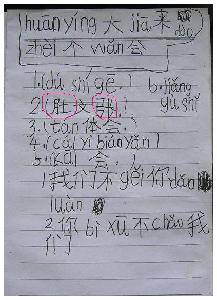 huānyíng大jiā来
zhèi个wǎn会
1.(dú shī gē)
b.jiǎng gù shì
2.(肚皮舞)
3.(tán体会)
4.(cāi yǐ biān yǎn)
5.(kāi会)
1我们不gěi你dǎn
luàn
2你bì xū不chǎo我
们